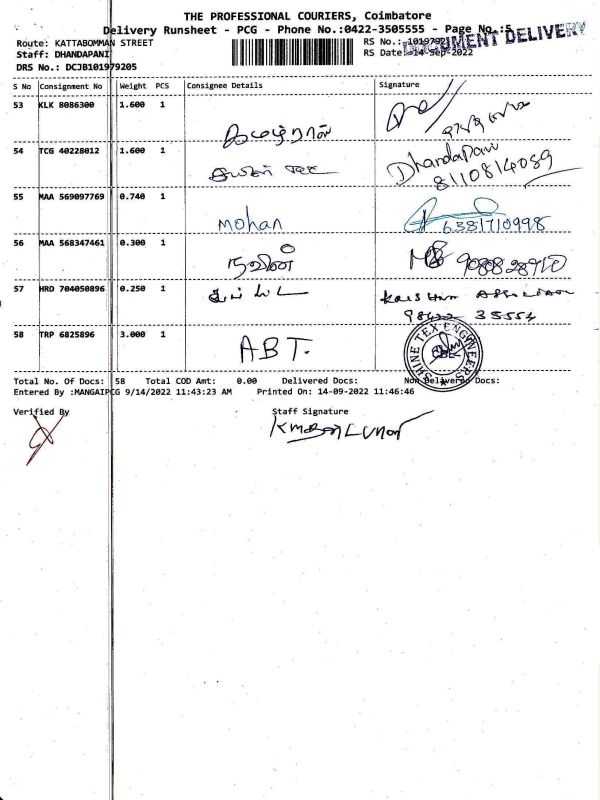 THE PROFESSIONAL COURIERS, Coimbatore
Delivery Runsheet - PCG - Phone No.:0422-3505555 - Page No.:5
DOCUMENT DELIVERY
Route: KATTABOMMAN STREET
RS No.:
Staff: DHANDAPANI
RS Date: 14-Sep-2022
DRS No.: DCJB101979205
S No Consignment No Weight PCS Consignee Details Signature
53 KLK 8086300 1.600 1
54 TCG 40228012 1.600 1 Dhandapani
8110814089
55 MAA 569097769 0.740 1 mohan 6381710998
56 MAA 568347461 0.300 1 நவீன்
57 HRD 704050896 0.250 1
58 TRP 6825896 3.000 1 ABT.
SHINE TEX ENGINEERS
CBE
Total No. Of Docs: 58 Total COD Amt: 0.00 Delivered Docs: Non Delivered Docs:
Entered By :MANGAIPCG 9/14/2022 11:43:23 AM Printed On: 14-09-2022 11:46:46
Verified By Staff Signature